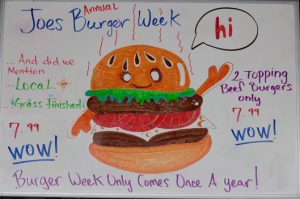 Annual
Joes Burger Week
hi
...And did we
Mention
...Local
Grass finished!
2 Topping
Beef Burgers
only
7.99
WOW!
7.99
WOW!
Burger Week Only Comes Once A year!